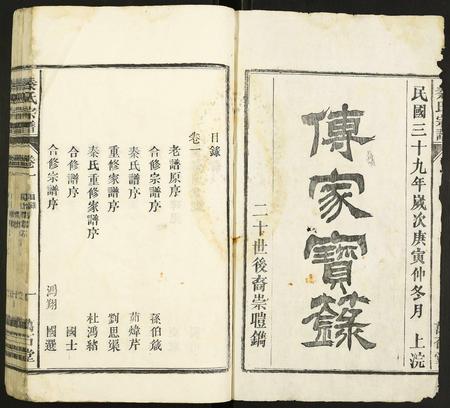 民國三十九年歲次庚寅仲冬月 上浣
傳家寶籙
二十世後裔崇聰鐫
目錄
卷一
老譜原序
合修宗譜序 孫伯箴
秦氏譜序 茹煒芹
重修家譜序 劉思渠
秦氏重修家譜序 杜鴻緒
合修譜序 國士
合修宗譜序 鴻翔 國選
秦氏宗譜
卷一
一